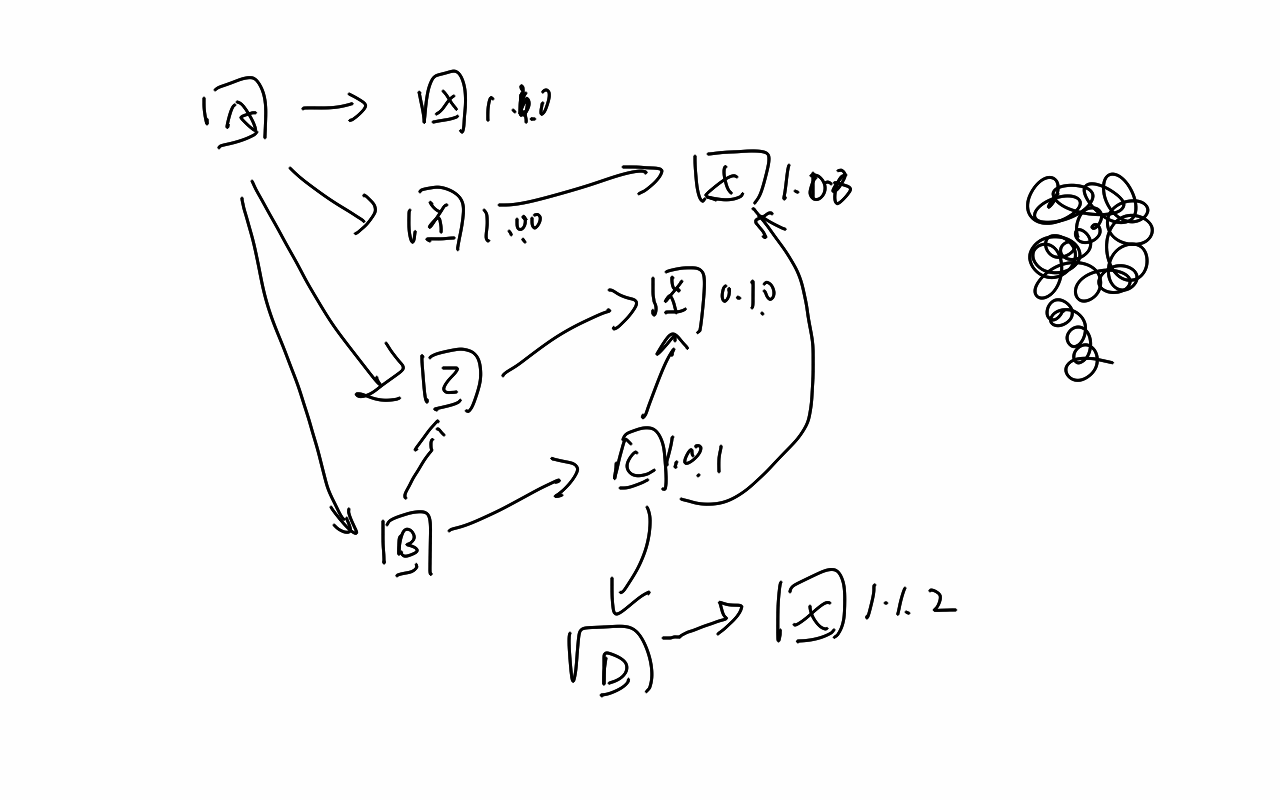 A
X 1.0.0
X 1.0.0
X 1.0.8
X 0.1.0
Z
C 1.0.1
B
X 1.1.2
D